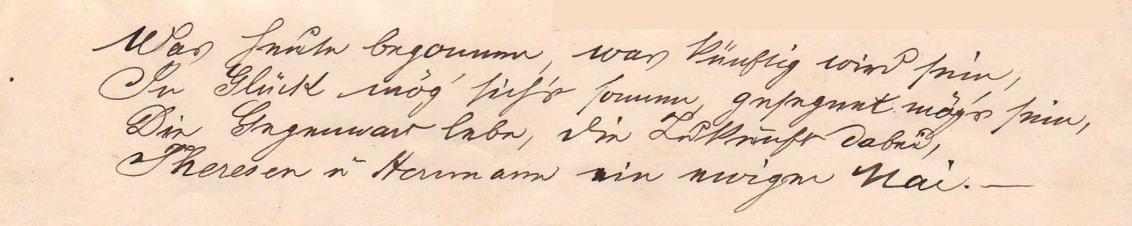 Was heute begonnen, was künftig wird sein,
In Glück mög' sich's sonnen, gesegnet mög's sein,
Die Gegenwart lebe, die Zukunft dabei,
Theresen u Hermann ein ewiger Mai. —